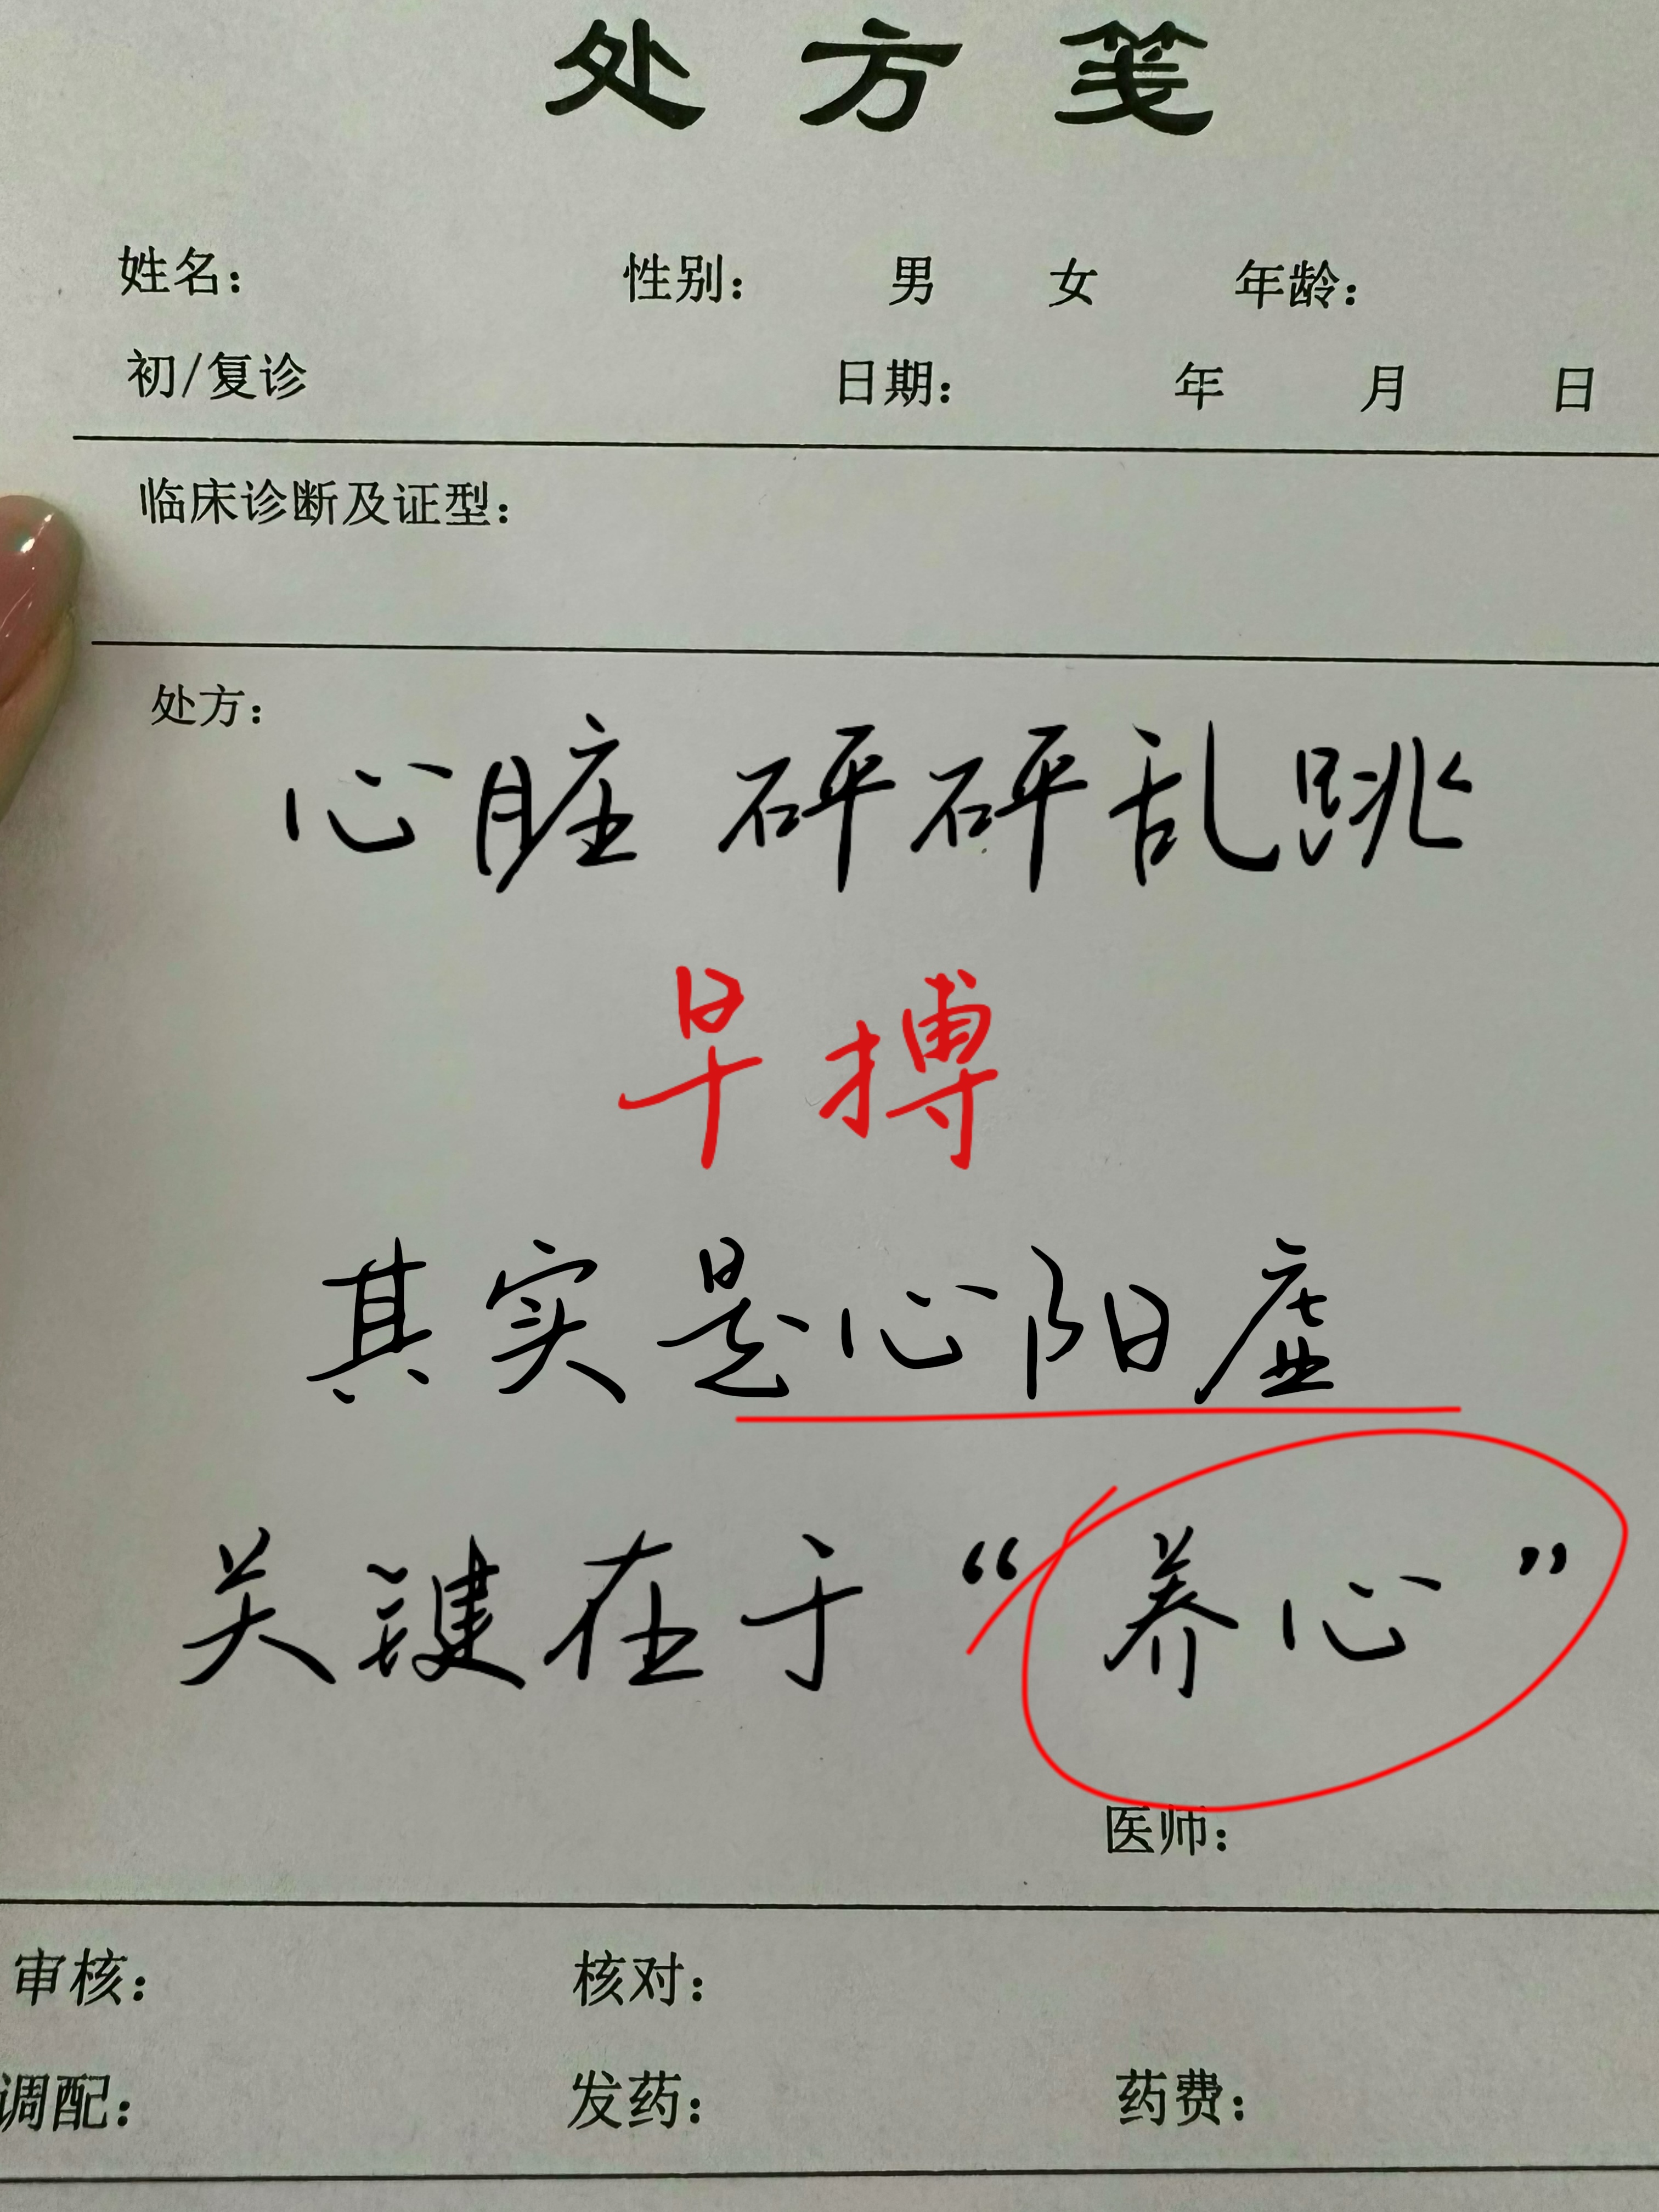 处方笺
姓名： 性别： 男 女 年龄：
初/复诊 日期： 年 月 日
临床诊断及证型：
处方：
心脏砰砰乱跳
早搏
其实是心阳虚
关键在于“养心”
医师：
审核： 核对：
调配： 发药： 药费：